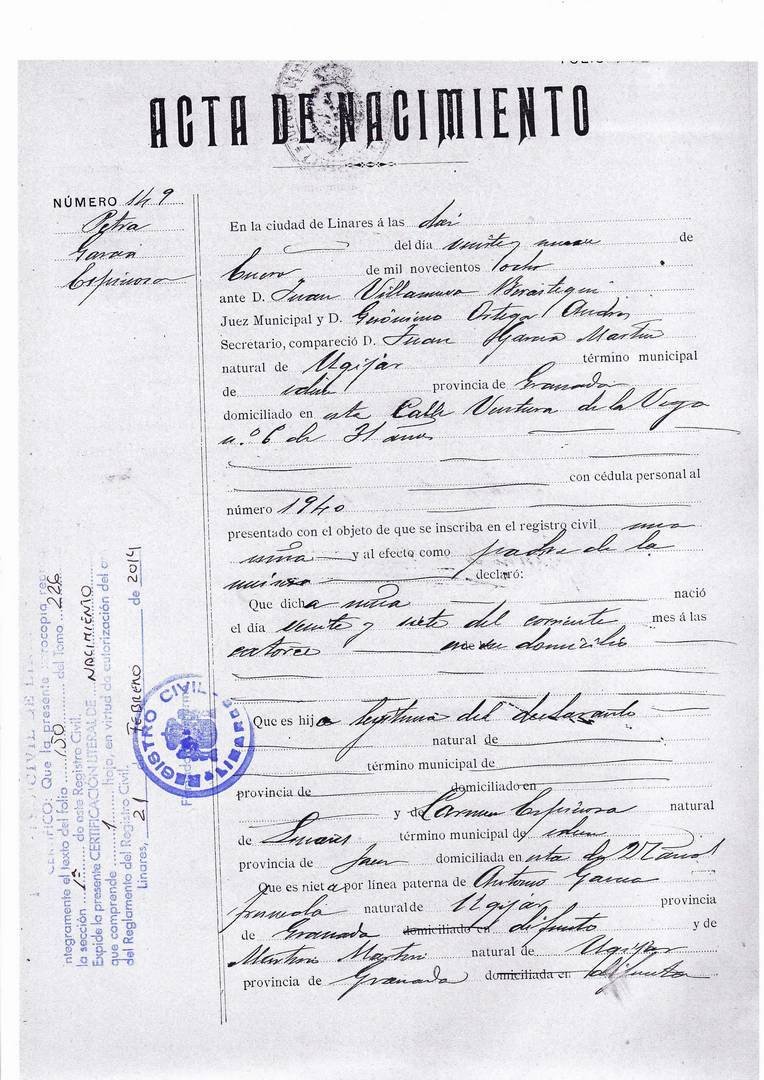 ACTA DE NACIMIENTO
NÚMERO 149
Petra
Garcia
Espinosa
En la ciudad de Linares á las
del día veinte y nueve de
Enero de mil novecientos ocho
ante D. Juan Villanueva
Juez Municipal y D. Gerónimo Ortega
Secretario, compareció D. Juan Garcia Martin
natural de Ugijar término municipal
de idem provincia de Granada
domiciliado en esta Calle Ventura de la Vega
n.º 6 de 31 años
con cédula personal al
número 1940
presentado con el objeto de que se inscriba en el registro civil una
niña y al efecto como padre de la
misma declaró:
Que dicha niña nació
el día veinte y siete del corriente mes á las
catorce en su domicilio
Que es hija legitima del declarante
natural de
término municipal de
provincia de domiciliado en
y de Carmen Espinosa natural
de Linares término municipal de idem
provincia de Jaen domiciliada en esta de 27 años
Que es nieta por línea paterna de Antonio Garcia
natural de Ugijar provincia
de Granada domiciliado en difunto y de
Martin natural de Ugijar
provincia de Granada domiciliada en difunta
CERTIFICO: Que la presente
ntegramente el texto del folio 150 del Tomo 226
la sección 1ª de este Registro Civil.
Expide la presente CERTIFICACIÓN LITERAL DE NACIMIENTO
que comprende 1 hoja, en virtud de autorización del
del Reglamento del Registro Civil.
Linares, 21 de FEBRERO de 2014
REGISTRO CIVIL